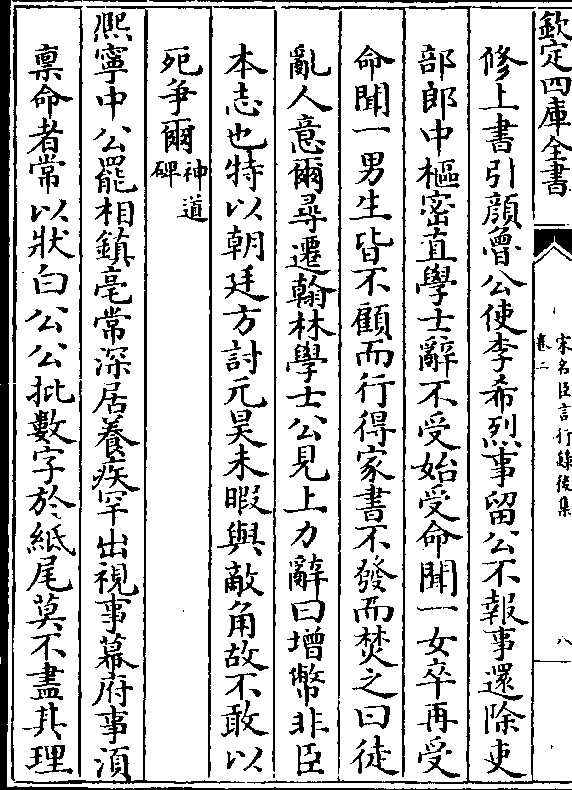 欽定四庫全書
宋名臣言行錄後集
卷二
八
修上書引顔魯公使李希烈事留公不報事還除吏
部郎中樞密直學士辭不受始受命聞一女卒再受
命聞一男生皆不顧而行得家書不發而焚之曰徒
亂人意爾尋遷翰林學士公見上力辭曰增幣非臣
本志也特以朝廷方討元昊未暇與敵角故不敢以
死爭爾神道碑
熈寧中公罷相鎮亳常深居養疾罕出視事幕府事須
稟命者常以狀白公公批數字於紙尾莫不盡其理